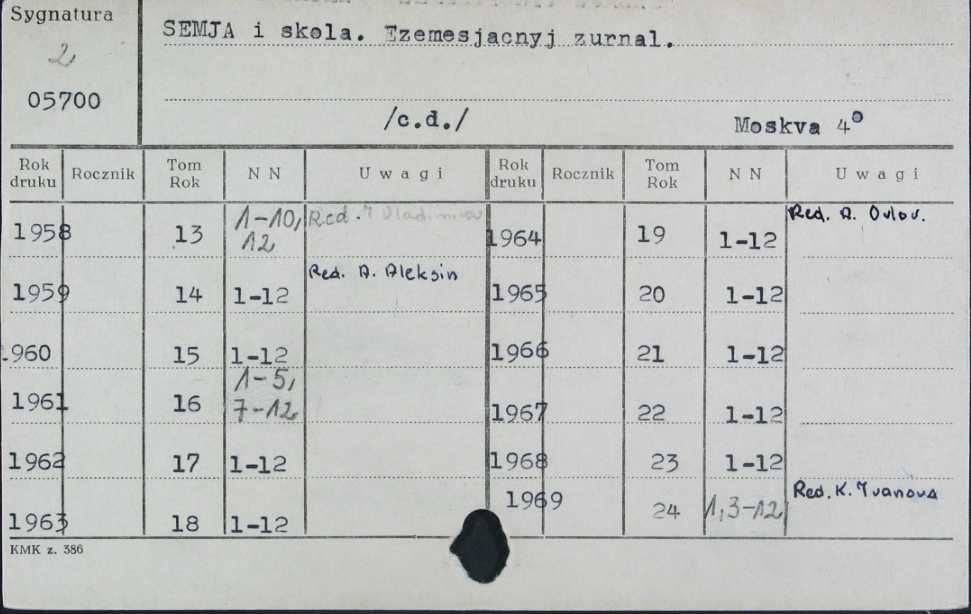 Sygnatura
2
05700
SEMJA i skola. Ezemesjacnyj zurnal.
/c.d./ Moskva 4°
Rok druku Rocznik Tom Rok N N Uwagi Rok druku Rocznik Tom Rok N N Uwagi
1958 13 1-10, 12 Red. 1964 19 1-12 Red. A. Orlov.
1959 14 1-12 Red. A. Aleksin 1965 20 1-12
1960 15 1-12 1966 21 1-12
1961 16 1-5, 7-12 1967 22 1-12
1962 17 1-12 1968 23 1-12
1963 18 1-12 1969 24 1,3-12 Red. K. Ivanova
KMK z. 386